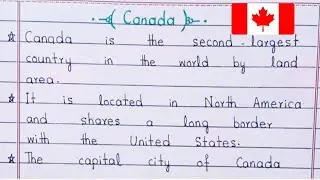 Canada
☆ Canada is the second-largest
country in the world by land
area.
☆ It is located in North America
and shares a long border
with the United States.
☆ The capital city of Canada